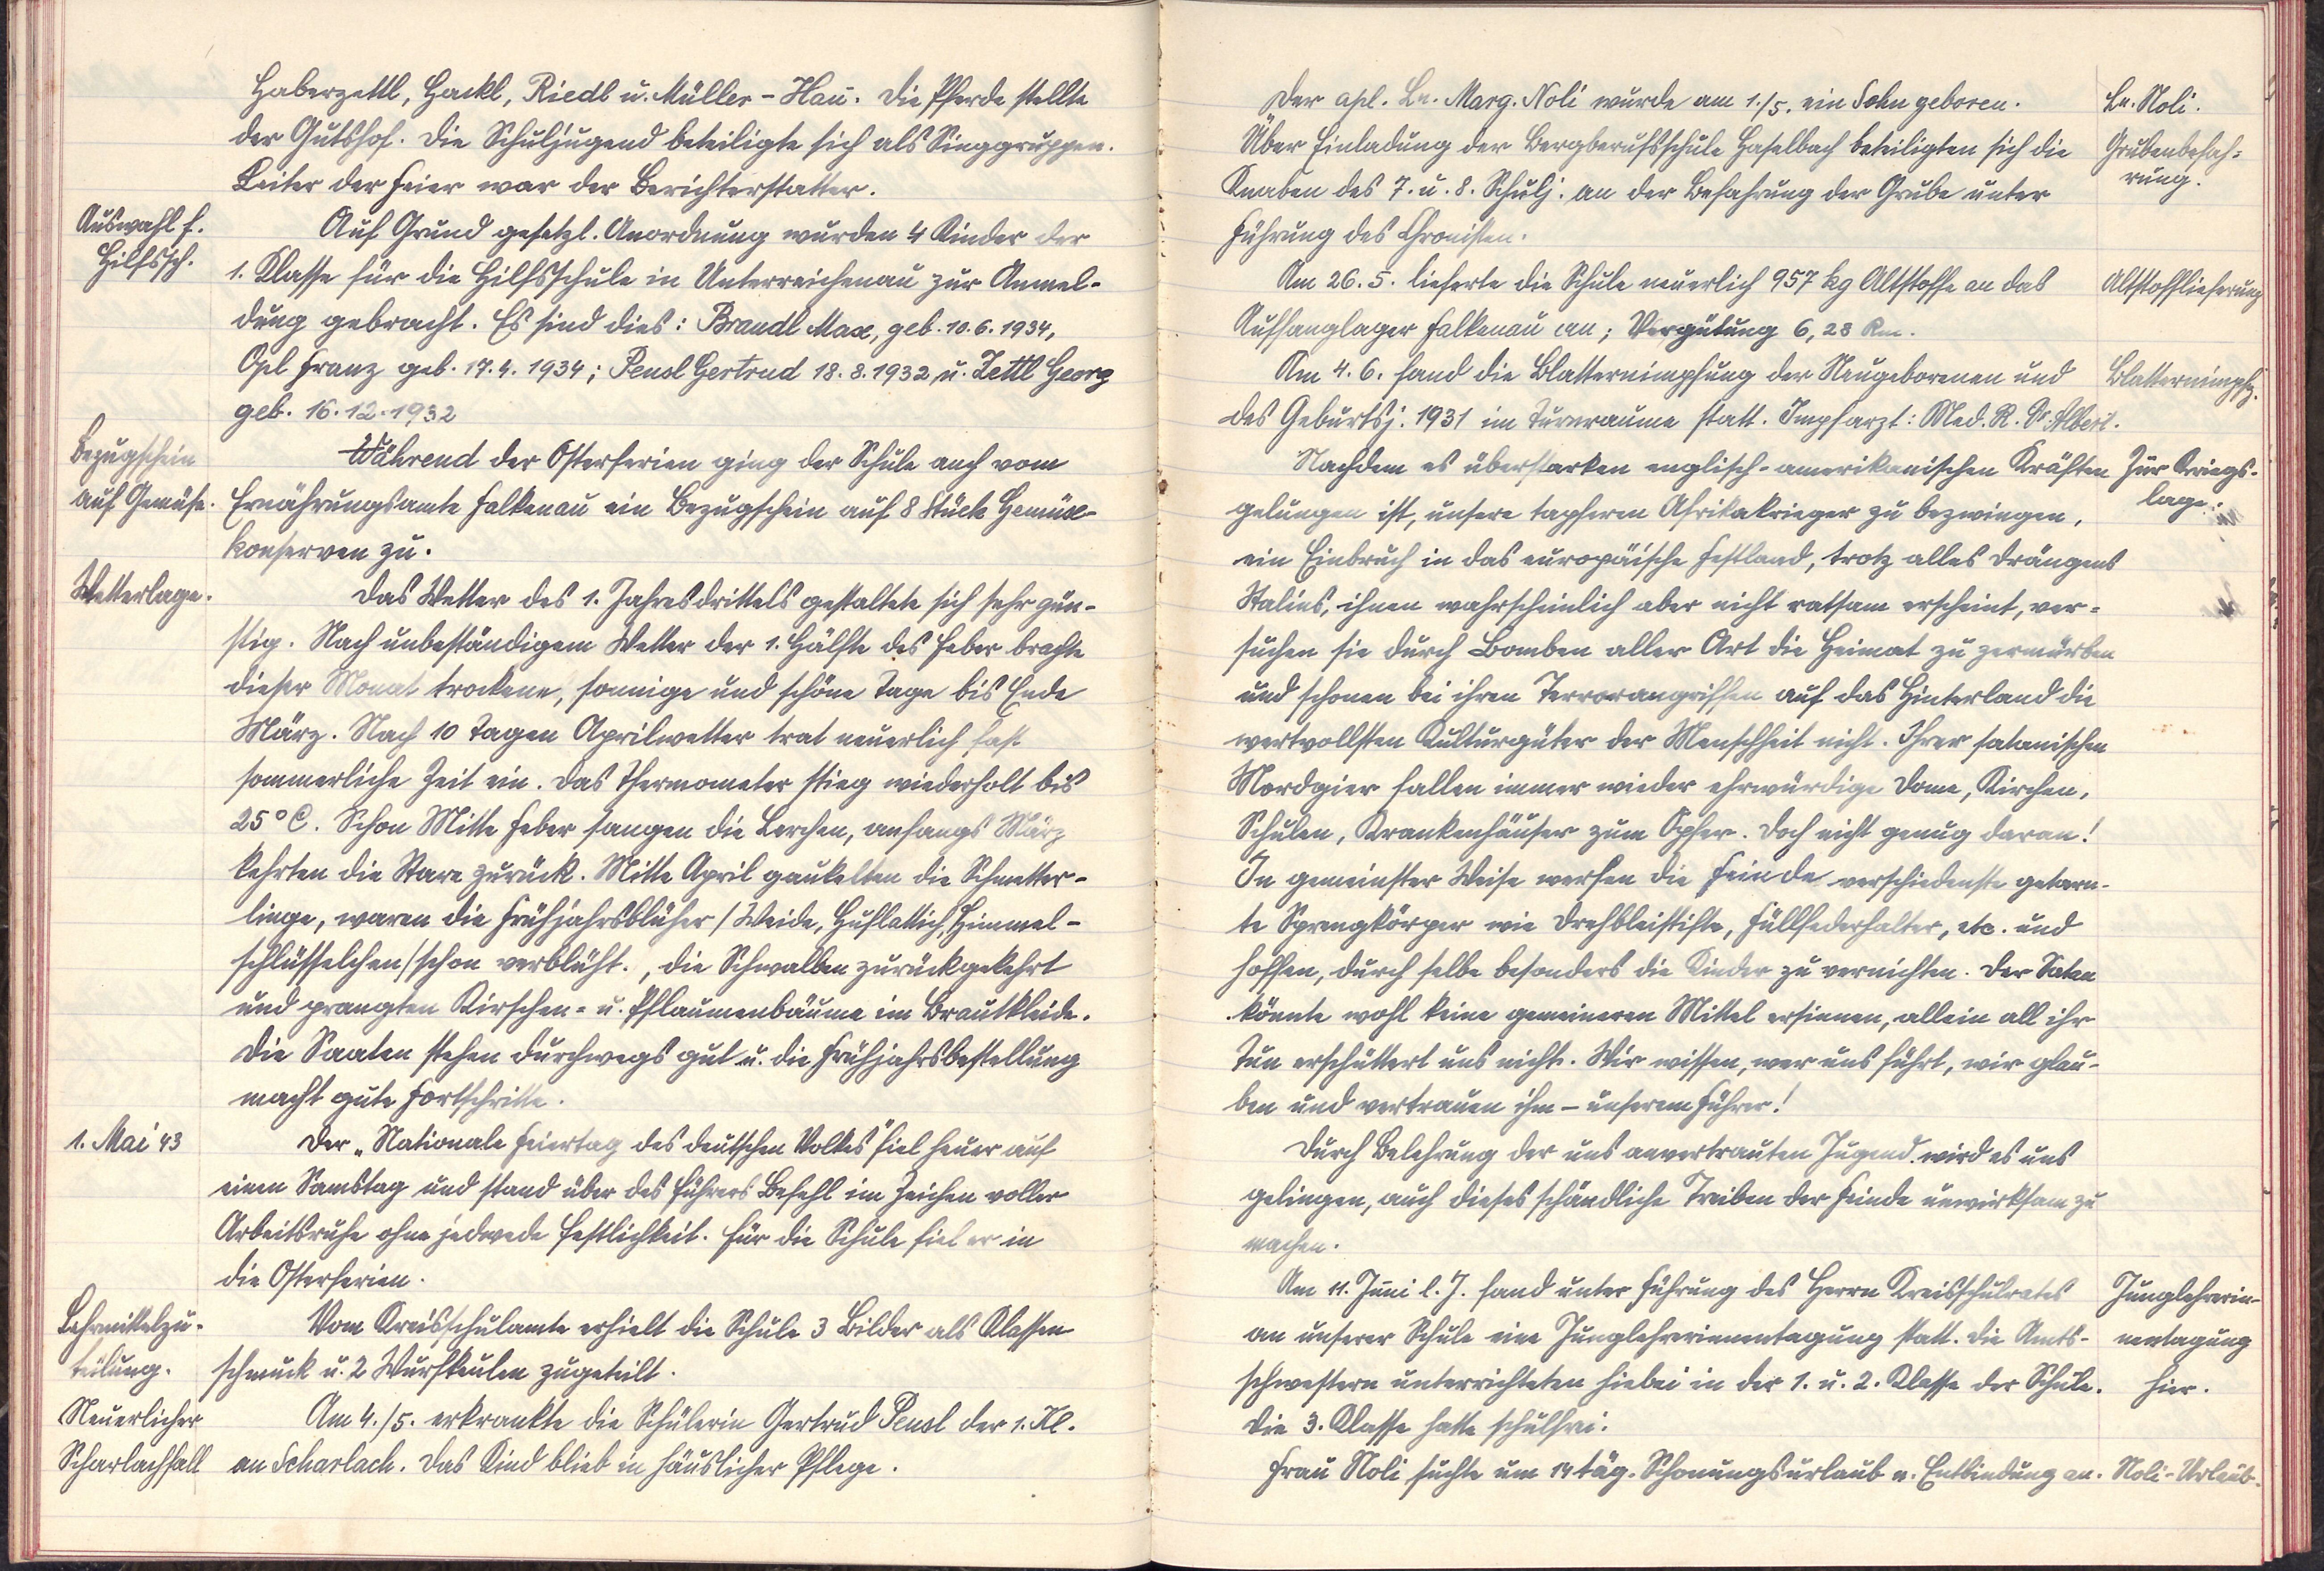 Haberzettl, Hackl, Riedl u. Müller-Hau. Die Pferde stellte
der Gutshof. Die Schuljugend beteiligte sich als Singgruppen.
Leiter der Feier war der Berichterstatter.
Auswahl f.
Hilfssch.
Auf Grund gesetzl. Anordnung wurden 4 Kinder der
1. Klasse für die Hilfsschule in Unterreichenau zur Anmel-
dung gebracht. Es sind dies: Brandl Max, geb. 10.6.1934,
Opl Franz geb. 17.4.1934; Pensl Gertrud 18.8.1932 u. Zettl Georg
geb. 16.12.1932
Bezugschein
auf Gemüse.
Während der Osterferien ging der Schule auch vom
Ernährungsamte Falkenau ein Bezugschein auf 8 Stück Gemüse-
konserven zu.
Wetterlage.
Das Wetter des 1. Jahresdrittels gestaltete sich sehr gün-
stig. Nach unbeständigem Wetter der 1. Hälfte des Feber brachte
dieser Monat trockene, sonnige und schöne Tage bis Ende
März. Nach 10 Tagen Aprilwetter trat neuerlich fast
sommerliche Zeit ein. Das Thermometer stieg wiederholt bis
25° C. Schon Mitte Feber sangen die Lerchen, anfangs März
kehrten die Stare zurück. Mitte April gaukelten die Schmetter-
linge, waren die Frühjahrsblüher / Weide, Huflattich, Himmel-
schlüsselchen / schon verblüht., die Schwalben zurückgekehrt
und prangten Kirschen- u. Pflaumenbäume im Brautkleide.
Die Saaten stehen durchwegs gut u. die Frühjahrsbestellung
macht gute Fortschritte.
1. Mai 43
Der „Nationale Feiertag des deutschen Volkes" fiel heuer auf
einen Samstag und stand über des Führers Befehl im Zeichen voller
Arbeitsruhe ohne jedwede Festlichkeit. Für die Schule fiel er in
die Osterferien.
Lehrmittelzu-
teilung.
Vom Kreisschulamte erhielt die Schule 3 Bilder als Klassen
schmuck u. 2 Wurfkeulen zugeteilt.
Neuerlicher
Scharlachfall
Am 4./5. erkrankte die Schülerin Gertrud Pensl der 1. Kl.
an Scharlach. Das Kind blieb in häuslicher Pflege.
Der apl. Ln. Marg. Noli wurde am 1./5. ein Sohn geboren.
Ln. Noli.
Über Einladung der Bergberufsschule Haselbach beteiligten sich die
Knaben des 7. u. 8. Schulj. an der Befahrung der Grube unter
Führung des Chronisten.
Grubenbefah-
rung.
Am 26.5. lieferte die Schule neuerlich 957 kg Altstoffe an das
Auffanglager Falkenau an; Vergütung 6,28 Rm.
Altstofflieferung
Am 4.6. fand die Blatternimpfung der Neugeborenen und
des Geburtsj. 1931 im Turnraume statt. Impfarzt: Med. R. Dr Albert.
Blatternimpfg.
Nachdem es überstarken englisch-amerikanischen Kräften
Zur Kriegs-
lage.
gelungen ist, unsere tapferen Afrikakrieger zu bezwingen,
ein Einbruch in das europäische Festland, trotz alles Drängens
Stalins, ihnen wahrscheinlich aber nicht ratsam erscheint, ver-
suchen sie durch Bomben aller Art die Heimat zu zermürben
und schonen bei ihren Terrorangriffen auf das Hinterland die
wertvollsten Kulturgüter der Menschheit nicht. Ihrer satanischen
Mordgier fallen immer wieder ehrwürdige Dome, Kirchen,
Schulen, Krankenhäuser zum Opfer. Doch nicht genug daran!
In gemeinster Weise werfen die Feinde verschiedenste getarn-
te Sprengkörper wie Drehbleistifte, Füllfederhalter, etc. und
hoffen, durch selbe besonders die Kinder zu vernichten. Der Satan
könnte wohl keine gemeineren Mittel ersinnen, allein all ihr
Tun erschüttert uns nicht. Wir wissen, wer uns führt, wir glau-
ben und vertrauen ihm – unserem Führer!
Durch Belehrung der uns anvertrauten Jugend wird es uns
gelingen, auch dieses schändliche Treiben der Feinde unwirksam zu
machen.
Am 11. Juni l. J. fand unter Führung des Herrn Kreisschulrates
an unserer Schule eine Junglehrerinnentagung statt. Die Amts-
schwestern unterrichteten hiebei in der 1. u. 2. Klasse der Schule.
Die 3. Klasse hatte schulfrei.
Junglehrerin-
nentagung
hier.
Frau Noli suchte um 14 täg. Schonungsurlaub n. Entbindung an.
Noli-Urlaub.